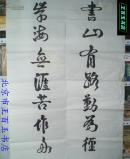 書山有路勤為徑
學海無涯苦作舟
北京市王百玉书店